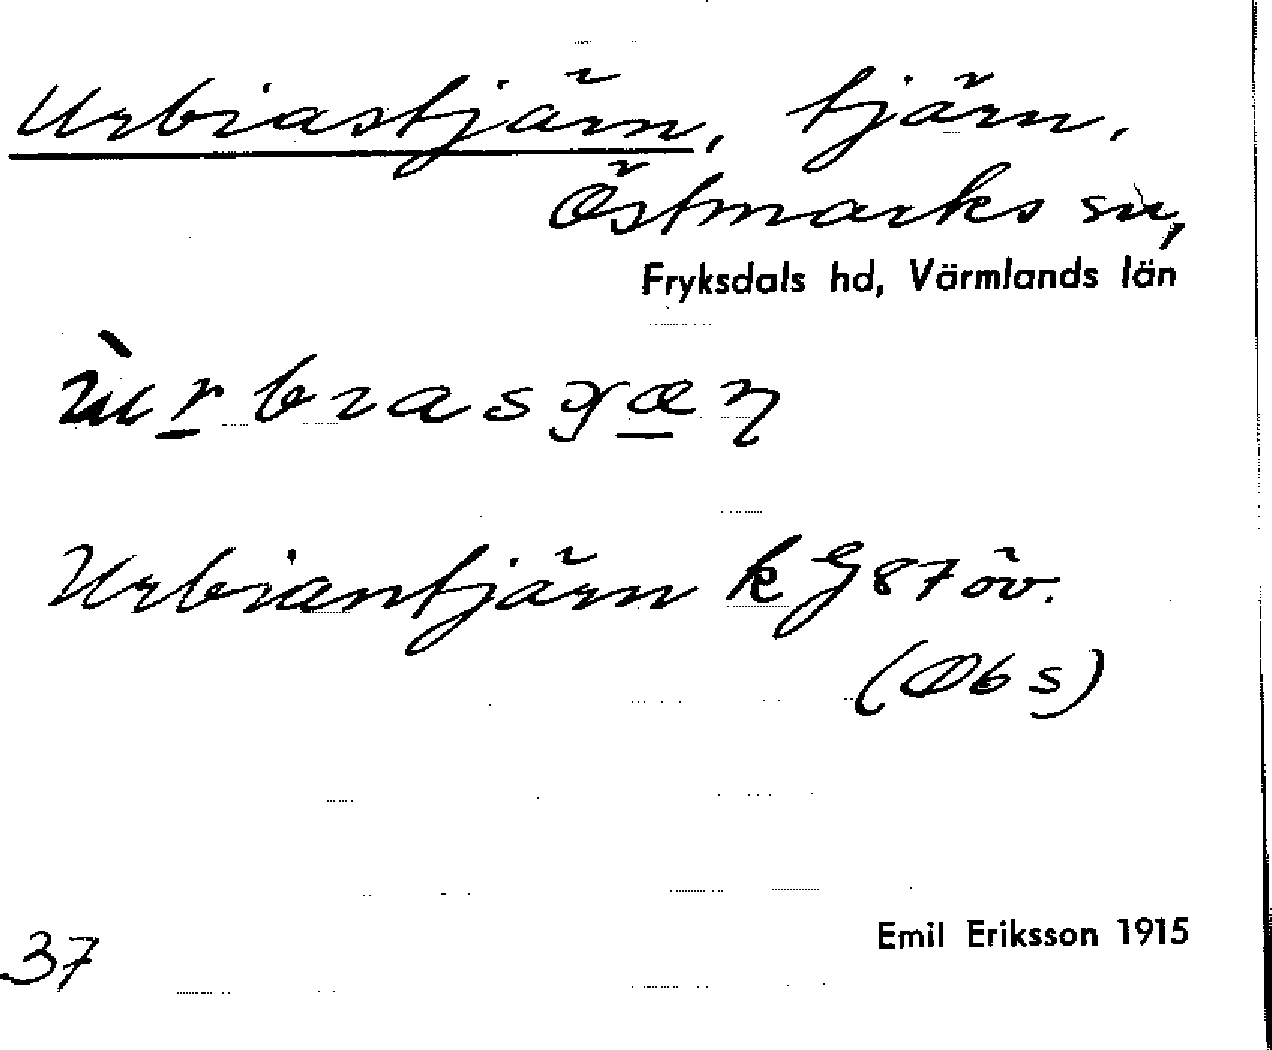 Urbiastjärn, tjärn,
Östmarks sn,
Fryksdals hd, Värmlands län
Urbiantjärn k G87 öv.
(Obs)
Emil Eriksson 1915
37